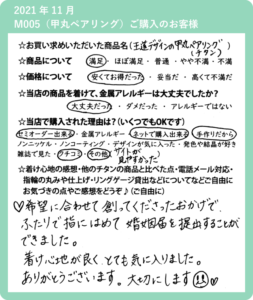 2021年11月
M005（甲丸ペアリング）ご購入のお客様
☆お買い求めいただいた商品名（王道デザインの甲丸ペアリング）
（チタン）
☆商品について 満足・ほぼ満足・普通・やや不満・不満
☆価格について 安くてお得だった・妥当だ・高くて不満だ
☆当店の商品を着けて、金属アレルギーは大丈夫でしたか？
大丈夫だった・ダメだった・アレルギーではない
☆当店で購入された理由は？（いくつでもOKです）
セミオーダー出来る・金属アレルギー・ネットで購入出来る・手作りだから
ノンニッケル・ノンコーティング・デザインが気に入った・発色や結晶が好き
雑誌で見た・クチコミ・その他（サイトが
見やすかった）
☆着け心地の感想・他のチタンの商品と比べた点・電話メール対応・
指輪の丸みや仕上げ・リングゲージ貸出などについてなどご自由に
お気づきの点やご感想をどうぞ♪（ご自由に）
♡希望に合わせて創ってくださったおかげで、
ふたりで指にはめて婚姻届を提出することが
できました。
着け心地が良く、とても気に入りました。
ありがとうございます。大切にします